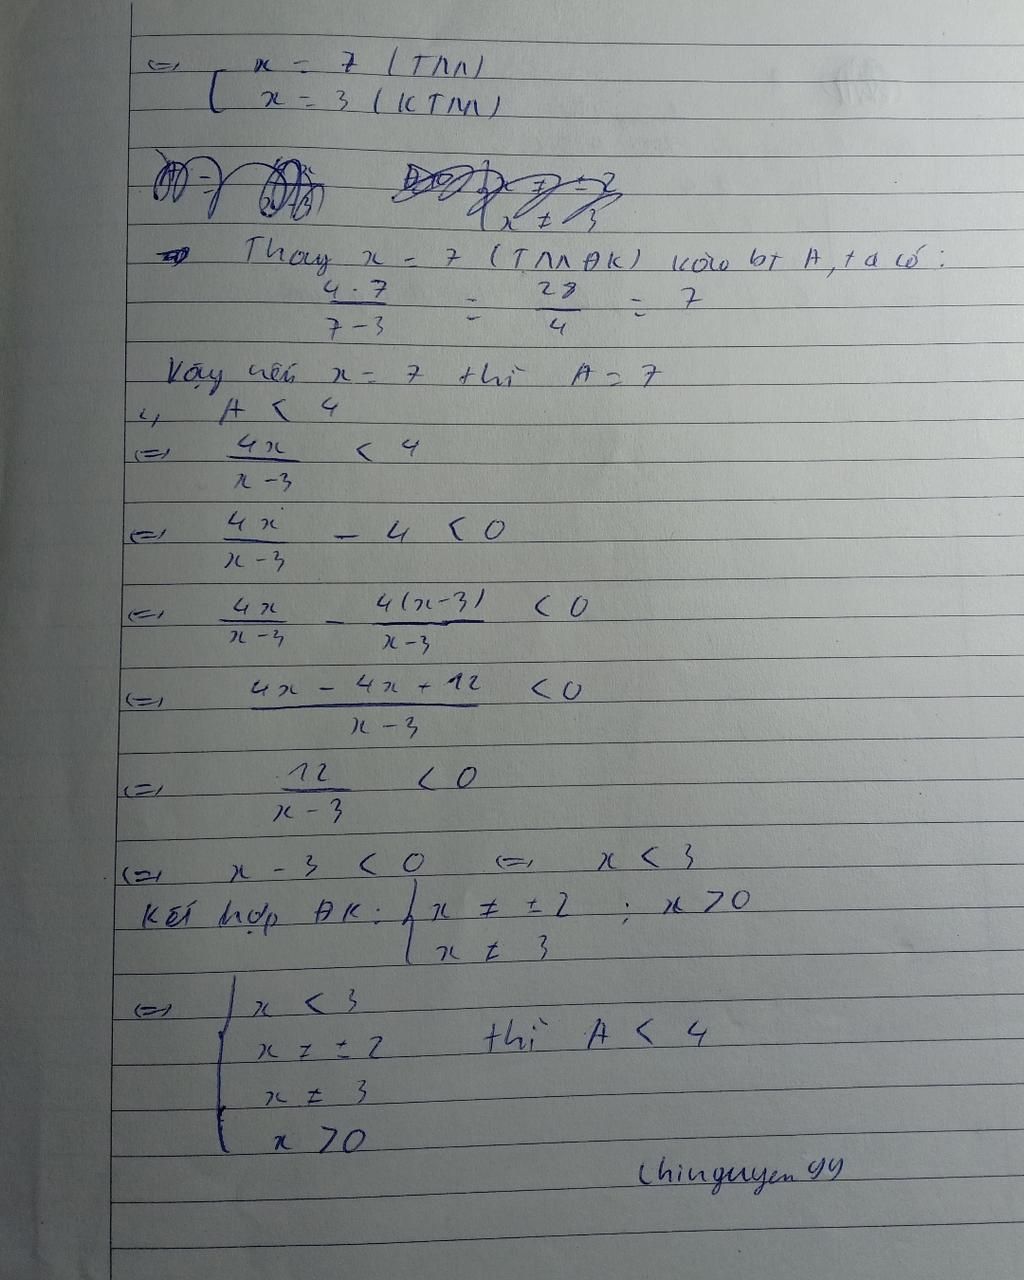 <=> [ x = 7 (TMĐK)
x = 3 (KTM)
x ≠ ±2
x ≠ 3
=> Thay x = 7 (TMĐK) vào bt A, ta có:
4.7/7-3 = 28/4 = 7
Vậy nếu x = 7 thì A = 7
c, A < 4
<=> 4x/x-3 < 4
<=> 4x/x-3 - 4 < 0
<=> 4x/x-3 - 4(x-3)/x-3 < 0
<=> 4x - 4x + 12/x - 3 < 0
<=> 12/x - 3 < 0
<=> x - 3 < 0 <=> x < 3
Kết hợp ĐK: { x ≠ ±2 ; x > 0
x ≠ 3
<=> { x < 3
x ≠ ±2 thì A < 4
x ≠ 3
x > 0
Chinguyen99